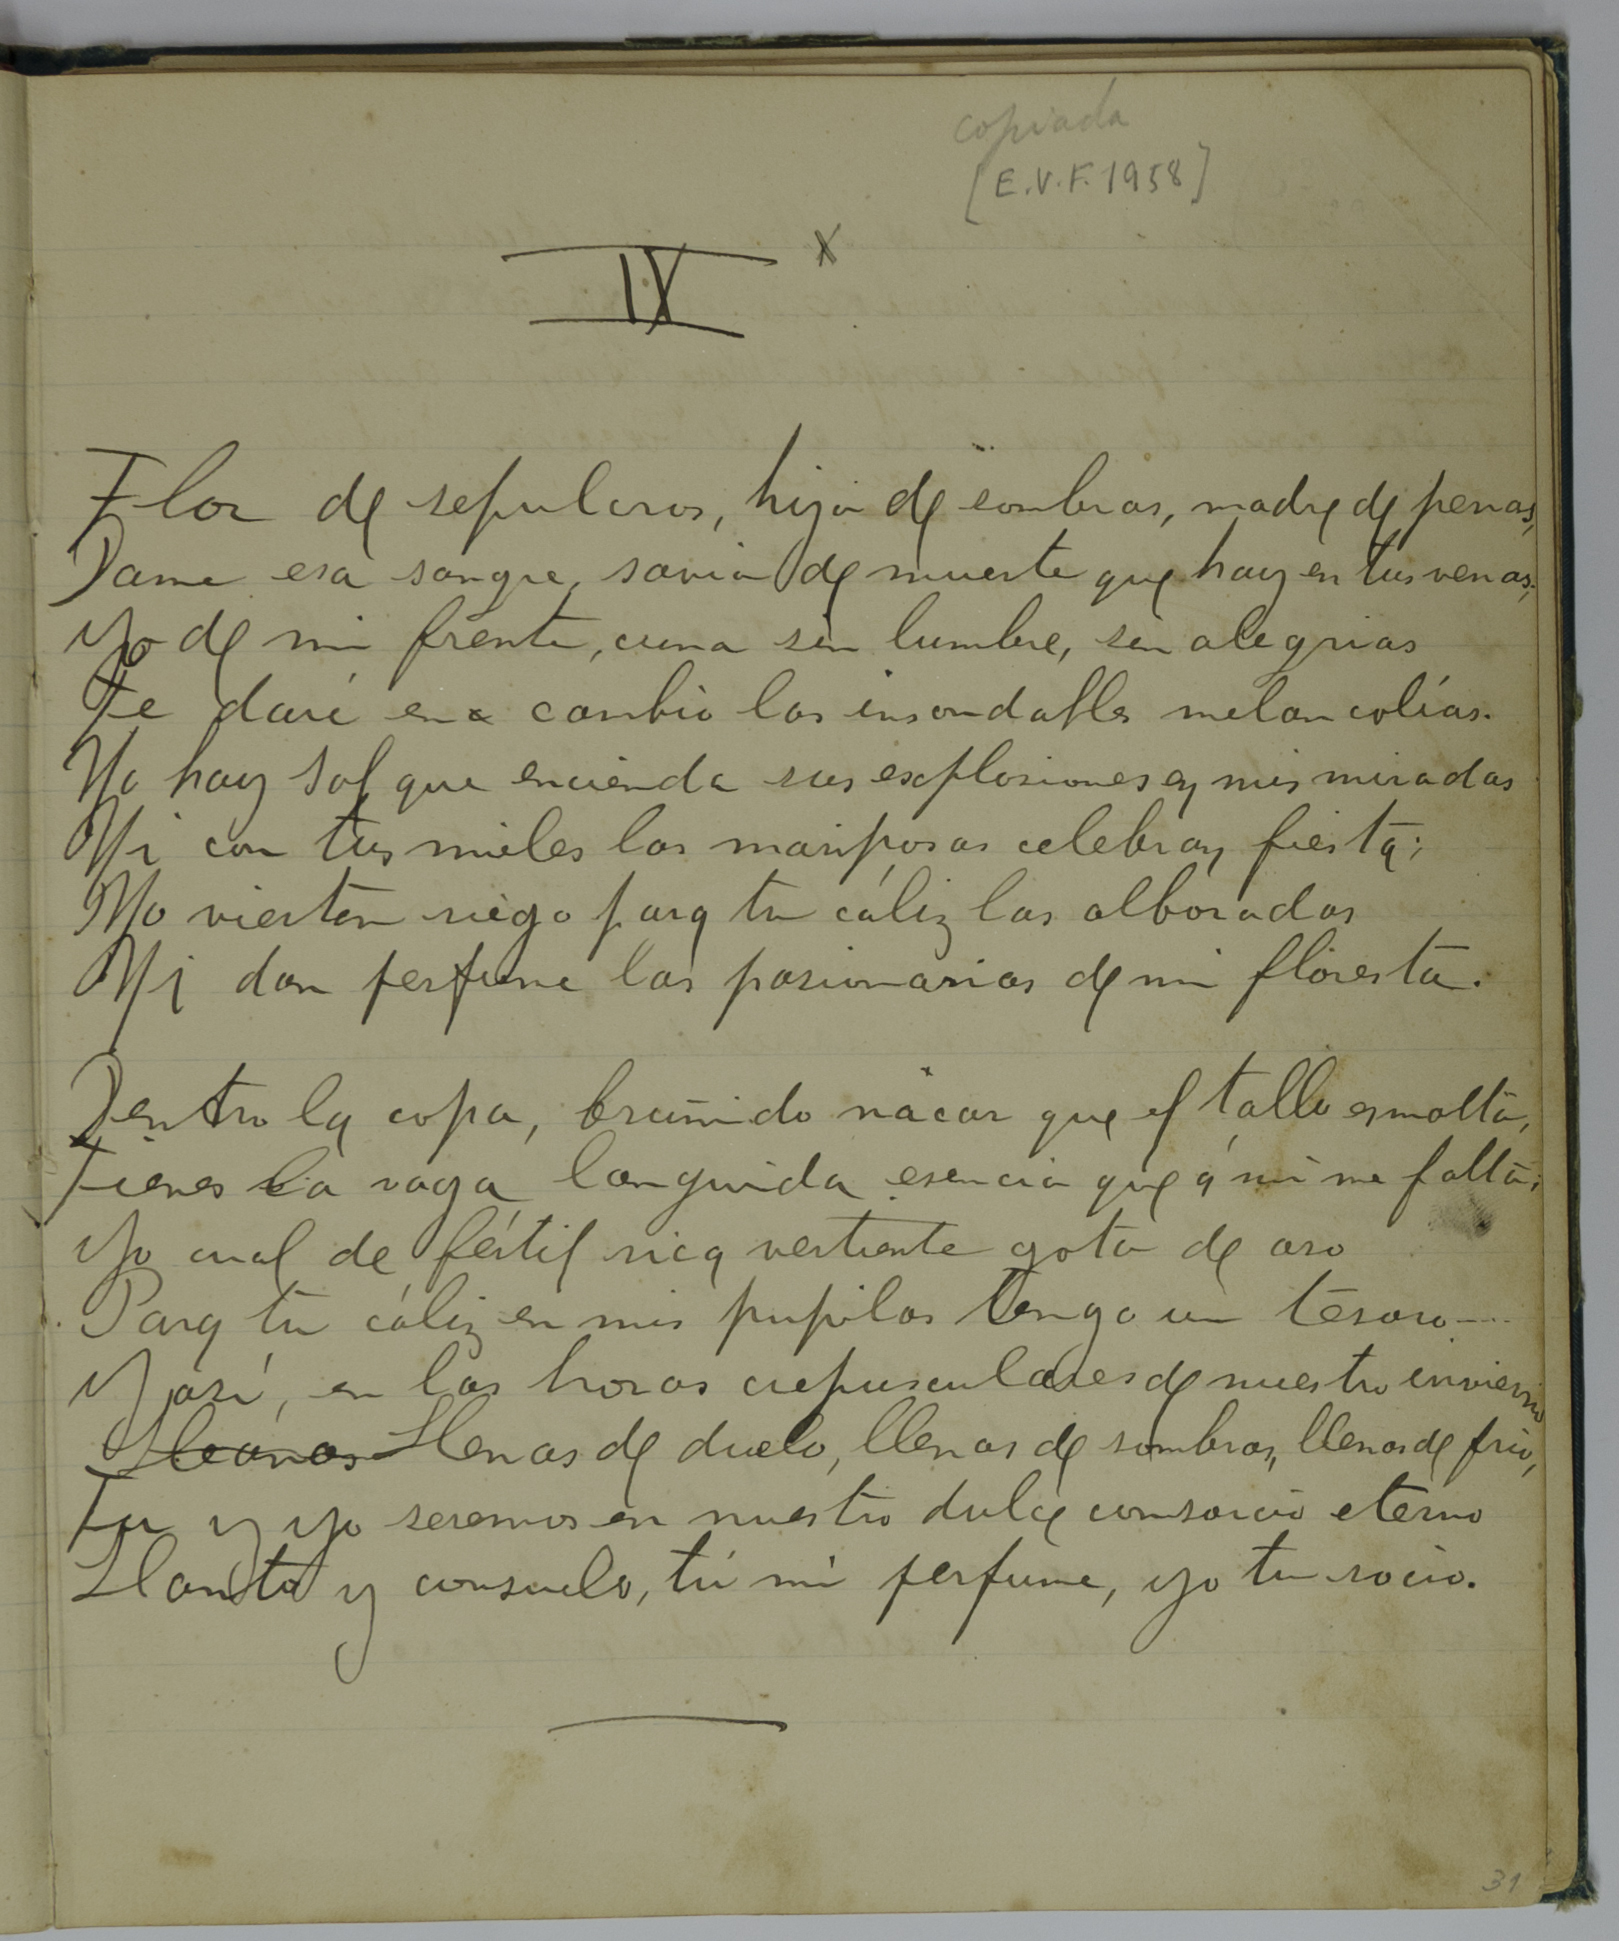 copiada
[E.V.F. 1958]
IX x
Flor de sepulcros, hija de sombras, madre de penas,
Dame esa sangre, savia de muerte que hay en tus venas;
Yo de mi frente, cuna sin lumbre, sin alegrias
Te daré en cambio las insondables melancolías.
No hay sol que encienda sus explosiones en mis miradas
Ni con tus mieles las mariposas celebran fiesta;
No vierten riego para tu cáliz las alboradas
Ni dan perfume las pasionarias de mi floresta.
Dentro la copa, bruñido nácar que el tallo esmalta,
Tienes la vaga, languida esencia que á mi me falta;
Yo cual de fértil rica vertiente gota de oro
Para tu cáliz en mis pupilas tengo un tesoro....
Y así, en las horas crepusculares de nuestro invierno
Llenas de duelo, llenas de sombras, llenas de frio,
Tu y yo seremos en nuestro dulce consorcio eterno
Llanto y consuelo, tú mi perfume, yo tu rocio.
31